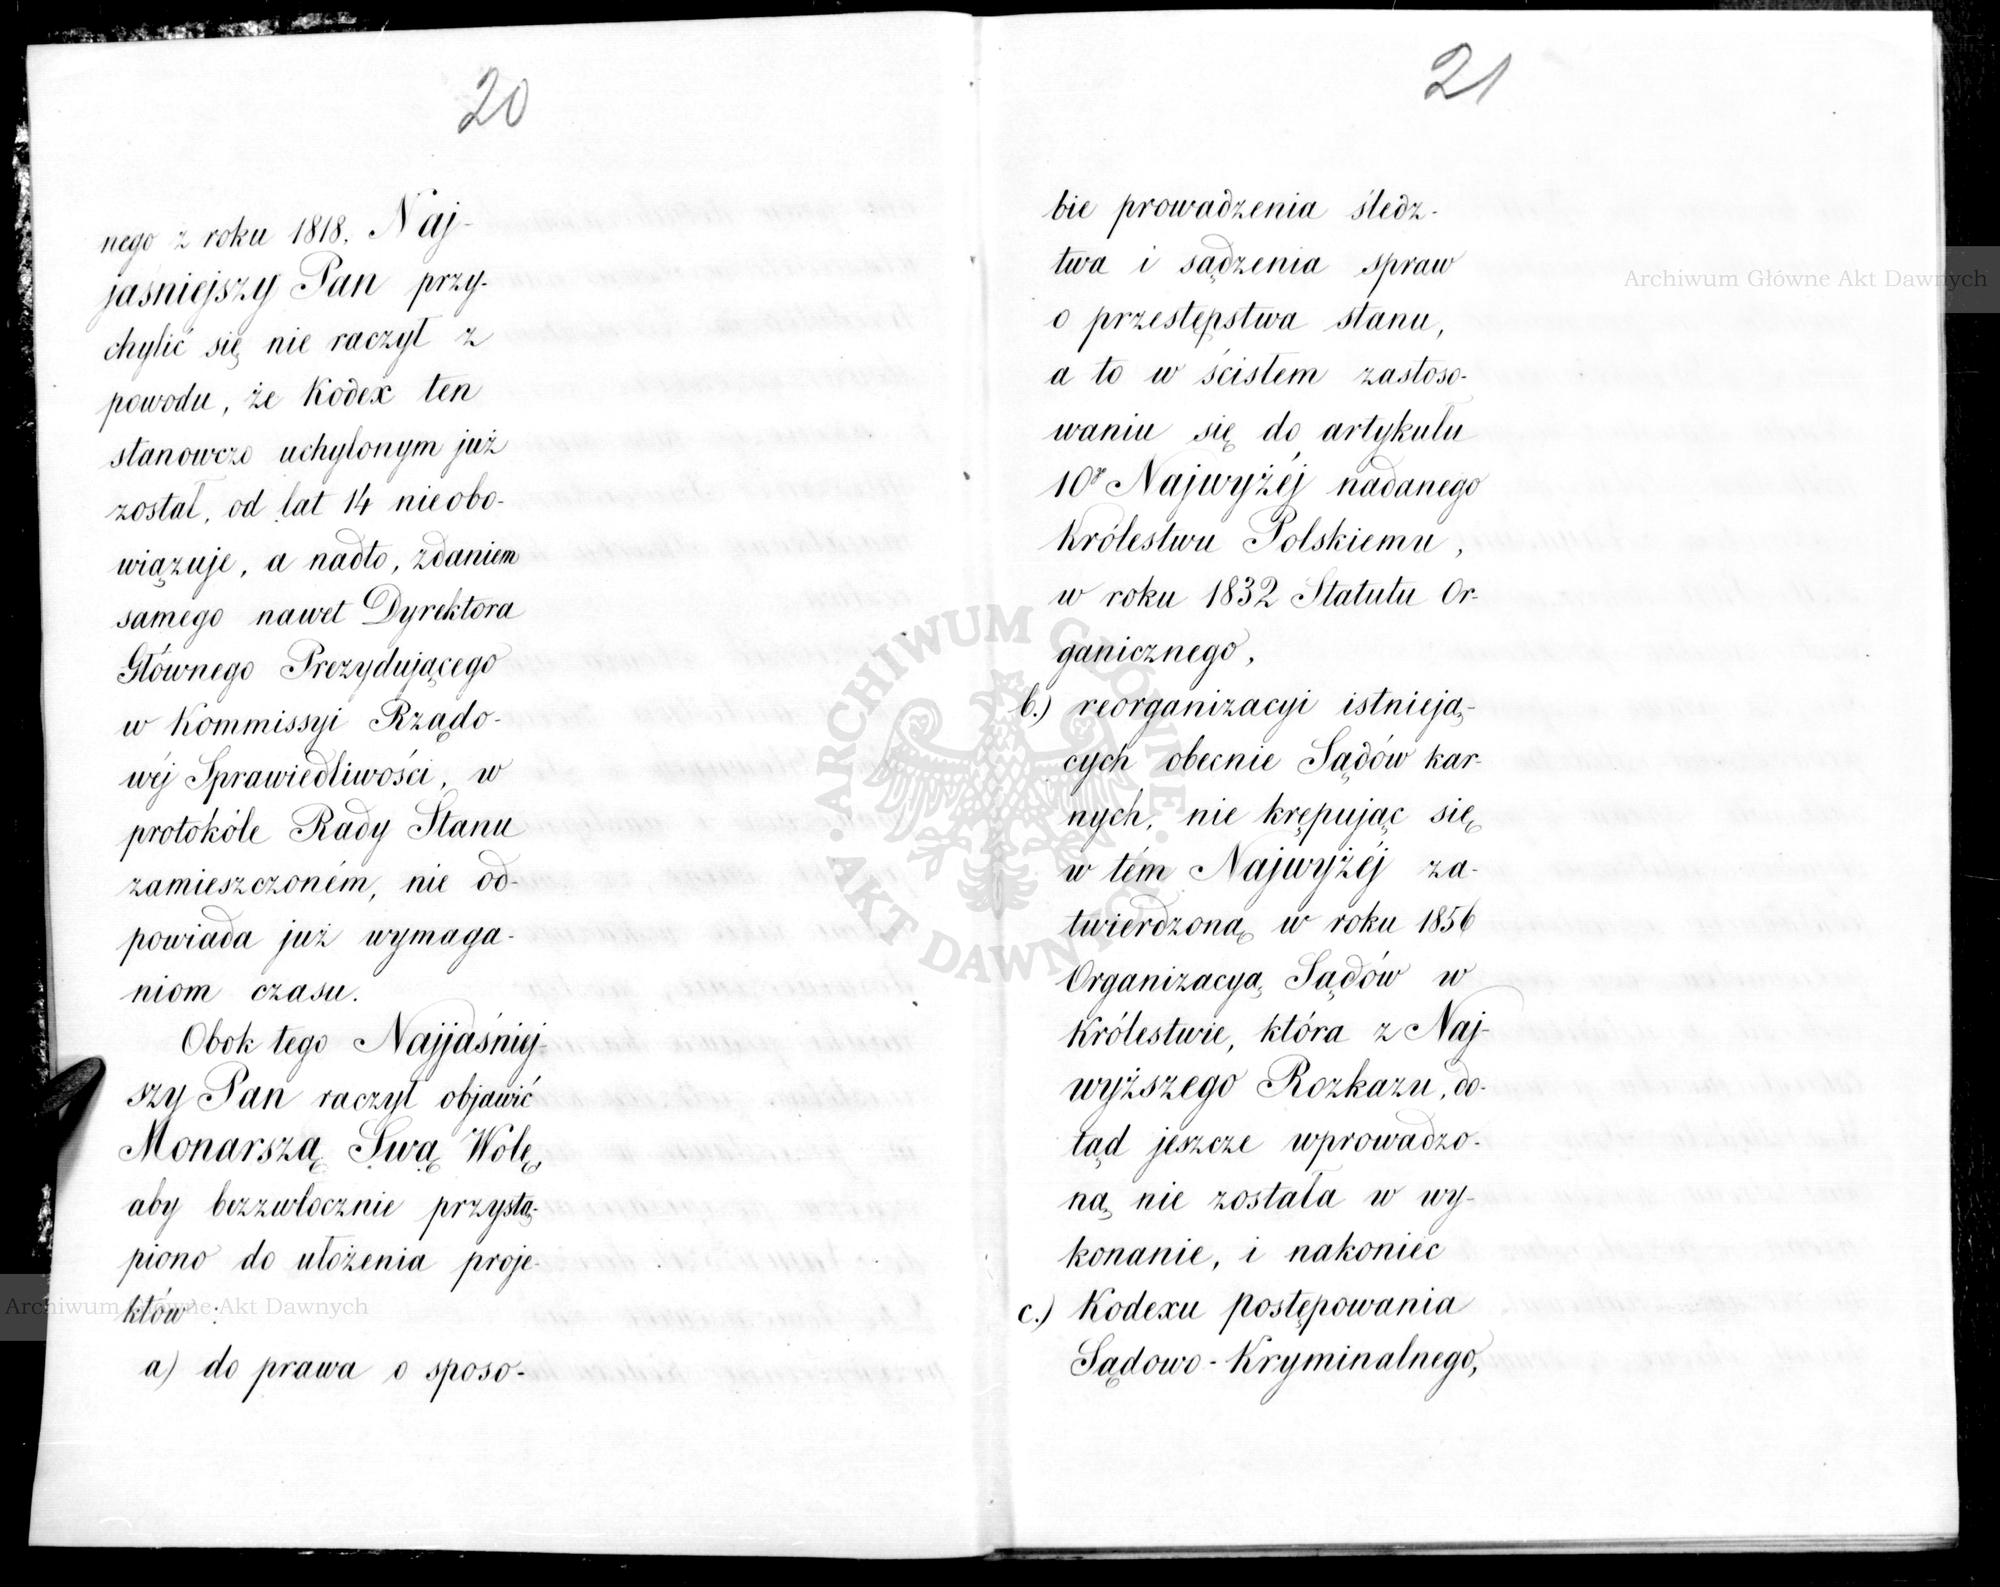 20
nego z roku 1818. Naj-
jaśniejszy Pan przy-
chylić się nie raczył z
powodu, że Kodex ten
stanowczo uchylonym już
został, od lat 14 nieobo-
wiązuje, a nadto, zdaniem
samego nawet Dyrektora
Głównego Prezydującego
w Kommissyi Rządo-
wéj Sprawiedliwości, w
protokóle Rady Stanu
zamieszczoném, nie od-
powiada już wymaga-
niom czasu.
Obok tego Najjaśniej-
szy Pan raczył objawić
Monarszą Swą Wolę,
aby bezzwłocznie przystą-
piono do ułożenia proje-
któw:
a) do prawa o sposo-
21
bie prowadzenia śledz-
twa i sądzenia spraw
o przestępstwa stanu,
a to w ścisłem zastoso-
waniu się do artykułu
10º Najwyżéj nadanego
Królestwu Polskiemu,
w roku 1832 Statutu Or-
ganicznego,
b.) reorganizacyi istnieją-
cych obecnie Sądów kar-
nych, nie krępując się
w tém Najwyżéj za-
twierdzoną w roku 1856
Organizacyą Sądów w
Królestwie, która z Naj-
wyższego Rozkazu, do-
tąd jeszcze wprowadzo-
ną nie została w wy-
konanie, i nakoniec
c.) Kodexu Postępowania
Sądowo-Kryminalnego,
Archiwum Główne Akt Dawnych
Archiwum Główne Akt Dawnych
ARCHIWUM GŁÓWNE
AKT DAWNYCH